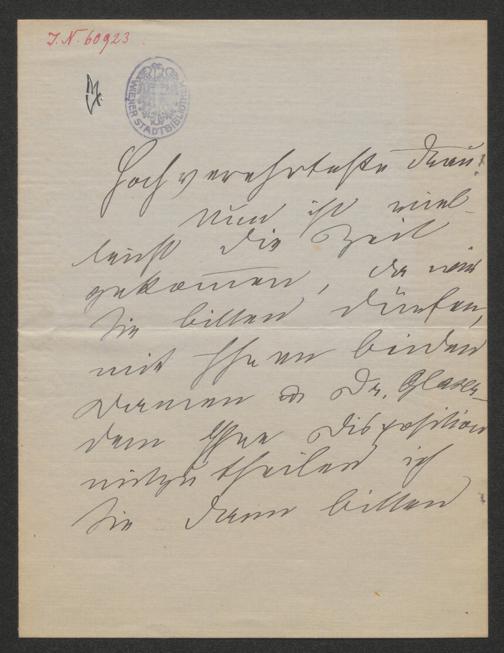 I.N. 60923
WIENER STADTBIBLIOTHEK
Hochverehrteste Frau!
Nun ist viel-
leicht die Zeit
gekommen, da wir
Sie bitten dürfen,
mit Ihren beiden
Damen u Dr. Glaser
dem Ihre Disposition
mitzutheilen ich
Sie dann bitten